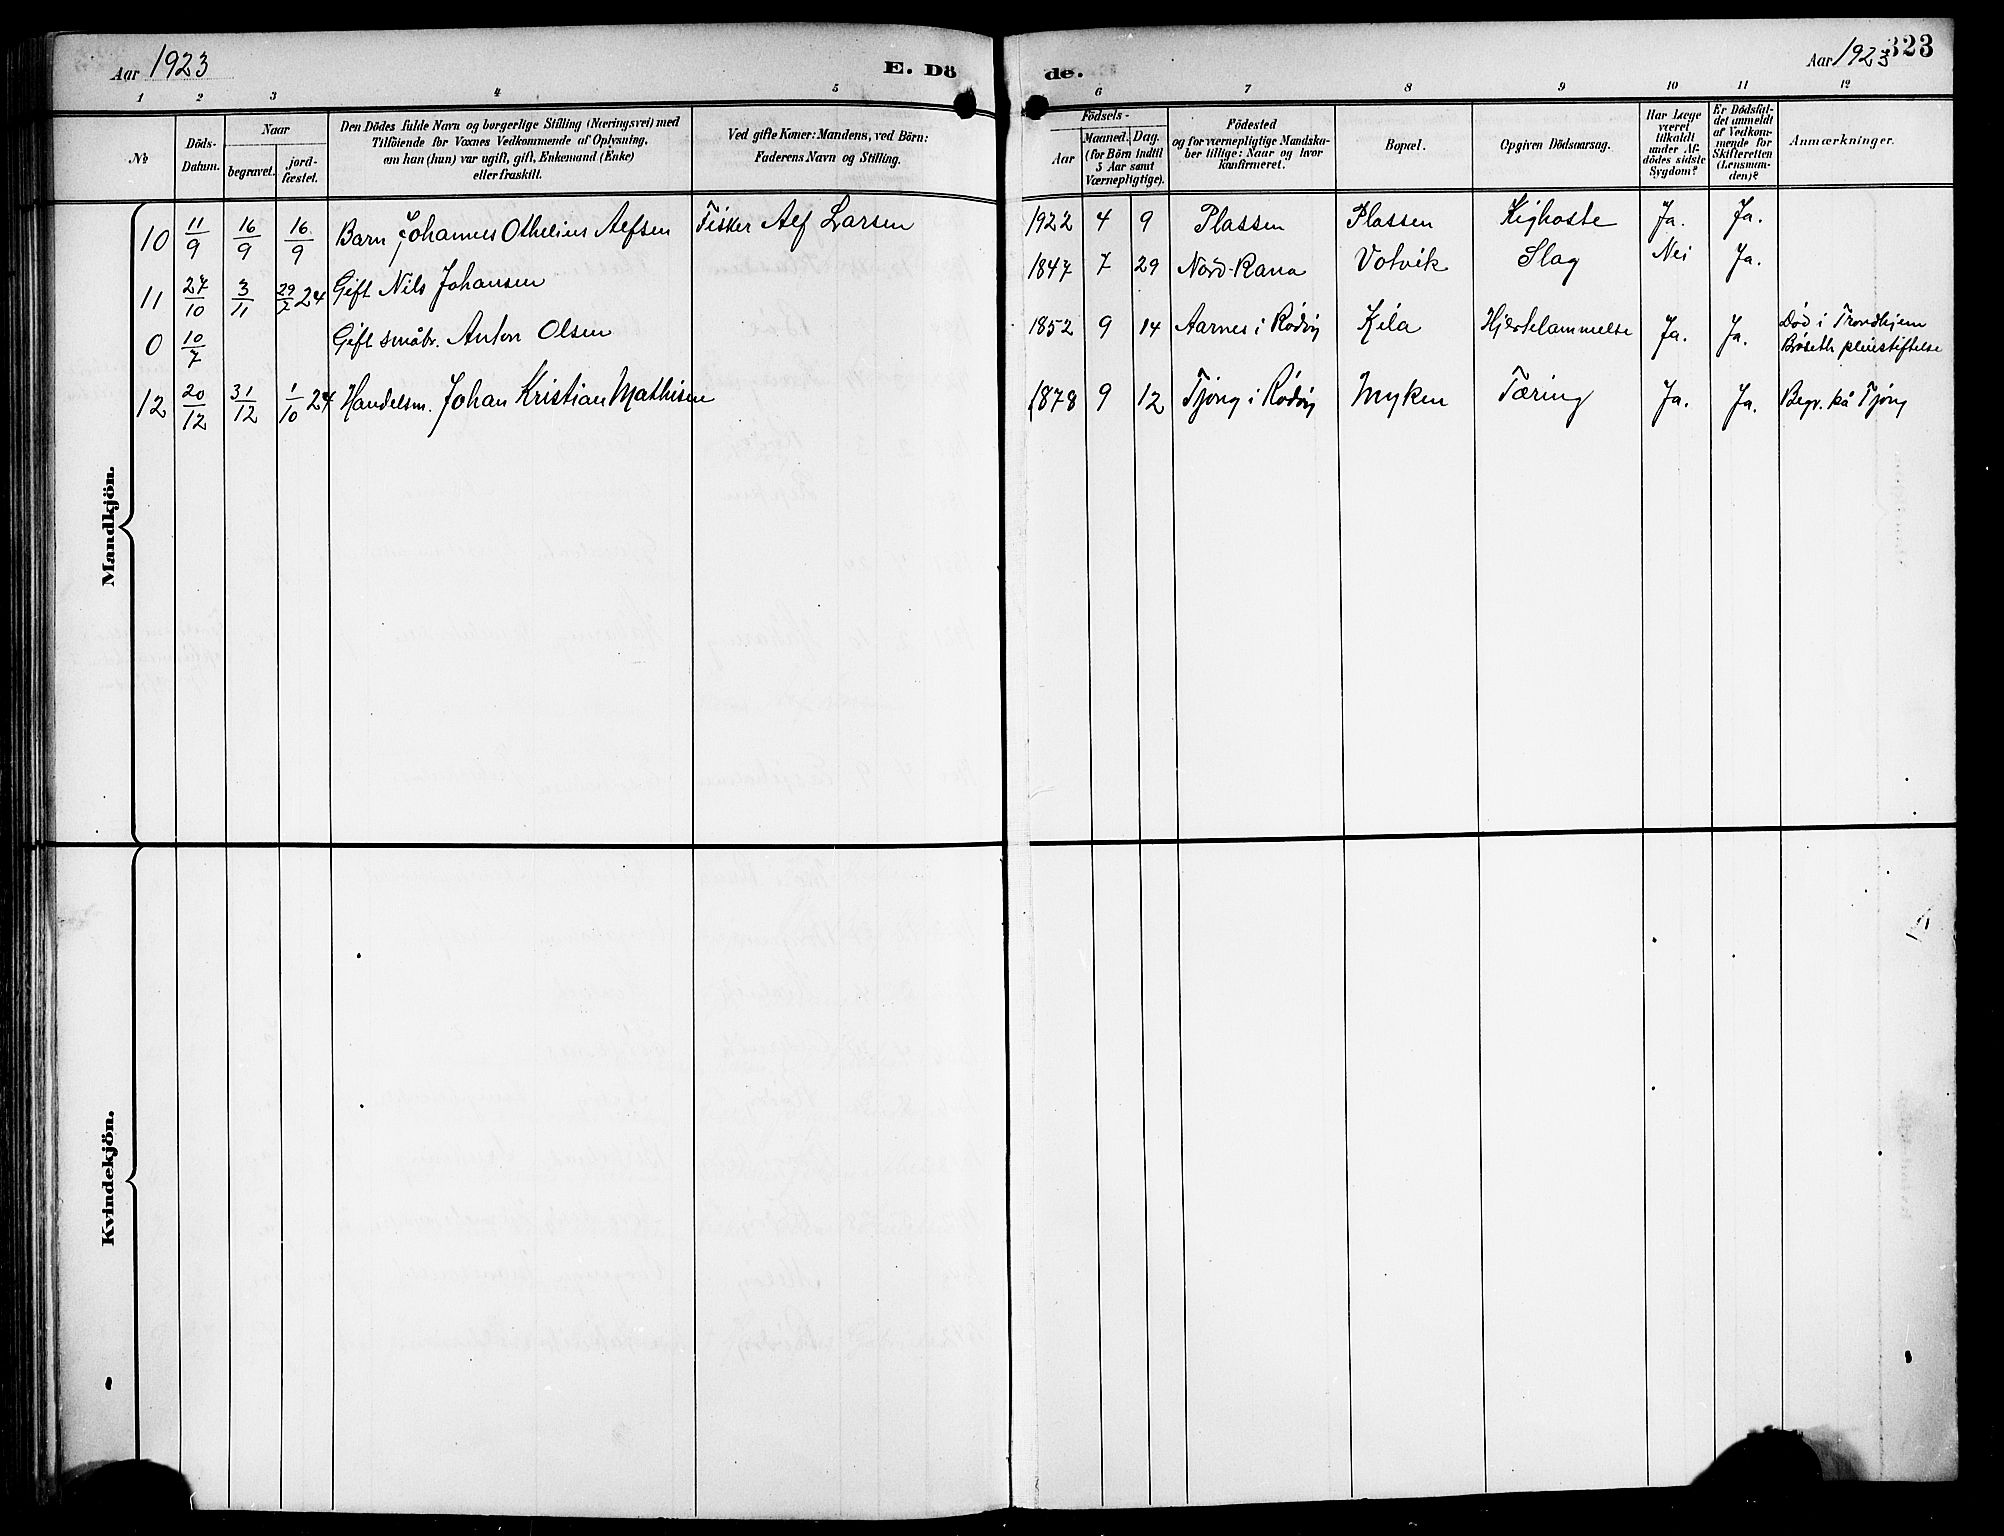 Aar 1923
E. Dö
de.
Aar 1923
323
1 2 3 4 5
6 7 8 9 10 11 12
No
Döds-Datum.
Naar
begravet.
jord-fæstet.
Den Dödes fulde Navn og borgerlige Stilling (Næringsvei) med
Tilföiende for Voxnes Vedkommende af Oplysning,
om han (hun) var ugift, gift, Enkemand (Enke)
eller fraskilt.
Ved gifte Koner: Mandens, ved Börn:
Faderens Navn og Stilling.
Födsels-
Aar
Maaned. Dag.
(for Börn indtil
5 Aar samt
Værnepligtige).
Födested
og for værnepligtige Mandska-
ber tillige: Naar og hvor
konfirmeret.
Bopæl.
Opgiven Dödsaarsag.
Har Læge
været
tilkaldt
under Af-
dödes sidste
Sygdom?
Er Dödsfal-
det anmeldt
af Vedkom-
mende for
Skifteretten
(Lensman-
den)?
Anmærkninger.
Mandkjön.
10 11/9 16/9 16/9 Barn Johannes Othelius Alfsen Fisker Alf Larsen 1922 4 9 Plassen Plassen Kighoste Ja. Ja.
11 27/10 3/11 29/7 24 Gift Nils Johansen 1847 7 29 Nord-Rana Votvik Slag Nei Ja.
0 10/7 Gift småbr. Anton Olsen 1852 9 14 Aarnes i Rödöy Kila Hjertelammelse Ja. Ja. Död i Trondhjem
Bröseth pleiestiftelse
12 20/12 31/12 1/10 24 Handelsm. Johan Kristian Mathisen 1878 9 12 Tjong i Rödöy Myken Tæring Ja. Ja. Begr. på Tjong
Kvindekjön.